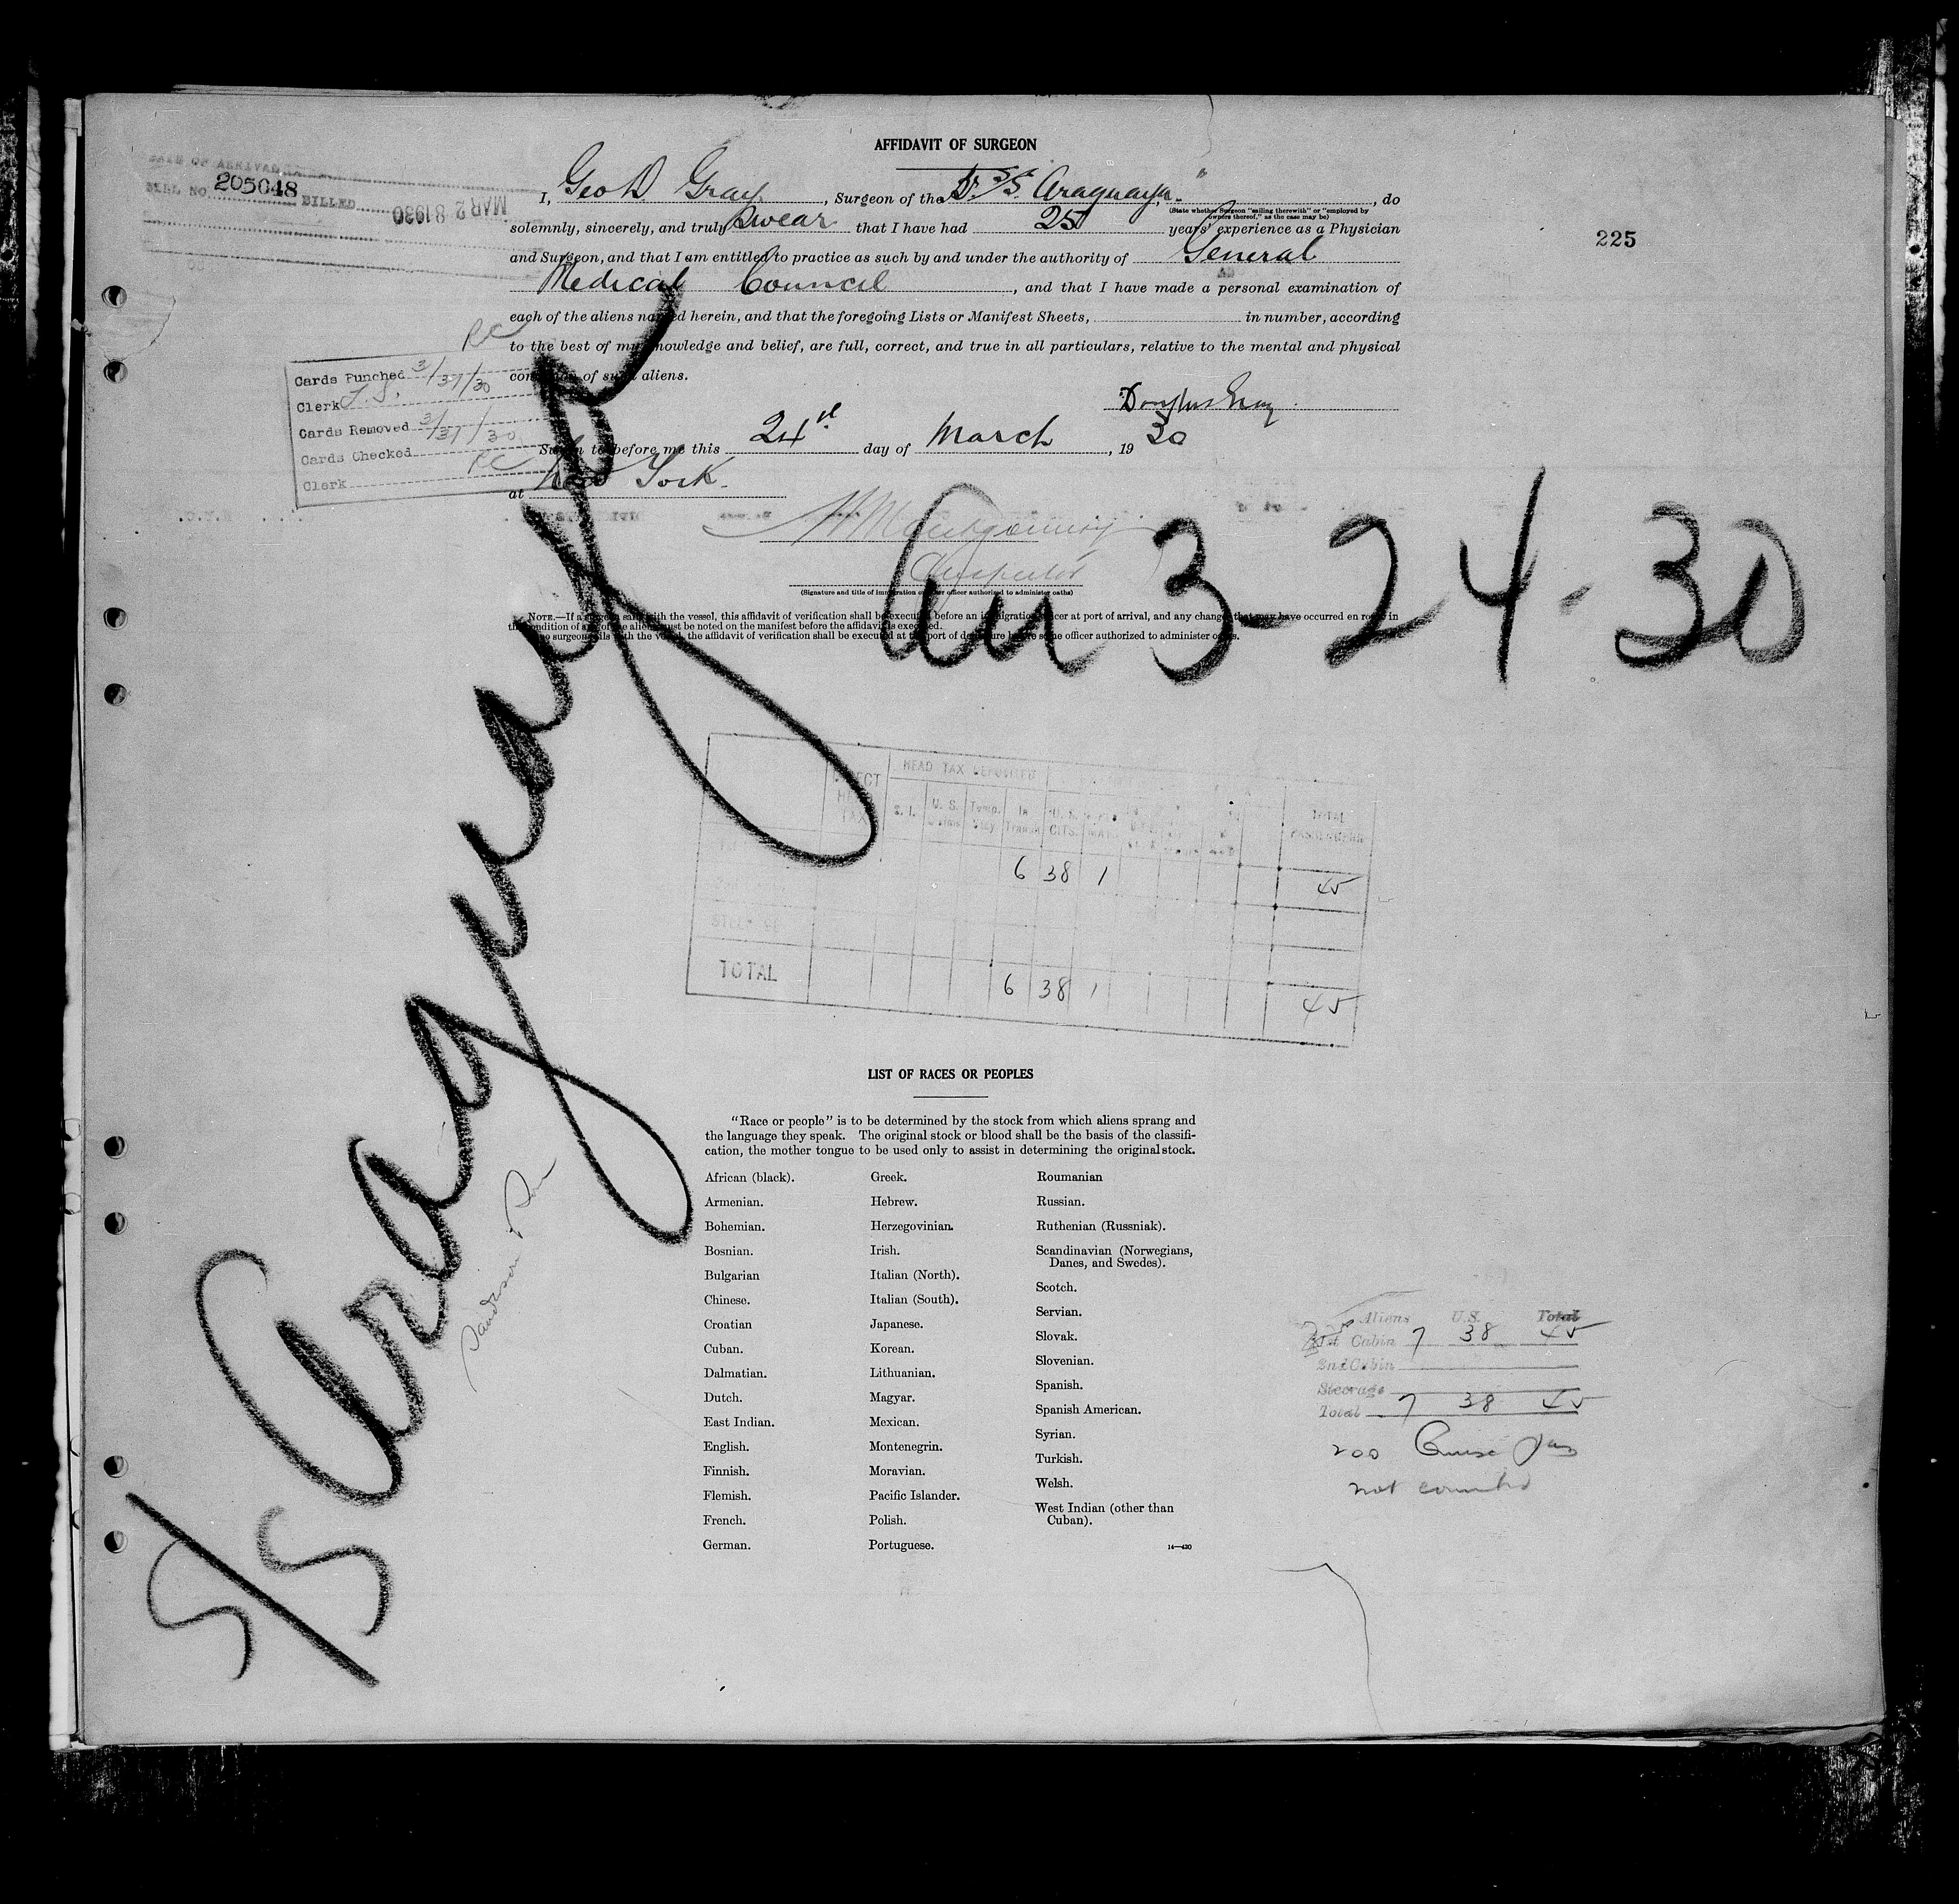 AFFIDAVIT OF SURGEON
DATE OF ARRIVAL
BILL NO. 205048 BILLED MAR 28 1930
I, Geo D. Gray, Surgeon of the Br. S.S. "Araguaya", do
(State whether Surgeon "sailing therewith" or "employed by
owners thereof," as the case may be)
solemnly, sincerely, and truly swear that I have had 25 years' experience as a Physician
225
and Surgeon, and that I am entitled to practice as such by and under the authority of General
Medical Council, and that I have made a personal examination of
each of the aliens named herein, and that the foregoing Lists or Manifest Sheets, in number, according
to the best of my knowledge and belief, are full, correct, and true in all particulars, relative to the mental and physical
condition of such aliens.
Cards Punched 3/31/30
Clerk
Cards Removed 3/31/30
Cards Checked
Clerk
Douglas Gray
Sworn to before me this 24th day of March, 1930
at New York.
Montgomery
Inspector
(Signature and title of immigration or other officer authorized to administer oaths)
NOTE.—If a surgeon sails with the vessel, this affidavit of verification shall be executed before an immigration officer at port of arrival, and any changes that may have occurred en route in
the condition of any of the aliens must be noted on the manifest before the affidavit is executed.
If no surgeon sails with the vessel, the affidavit of verification shall be executed at the port of departure before some officer authorized to administer oaths.
Arr 3-24-30
S/S Araguaya
HEAD TAX DEPOSITED
DIRECT HEAD TAX
S. I.
U. S.
Temp. Stay
In Transit
U. S. CITS.
TOTAL PASSENGERS
6 38 1 45
STEERAGE
TOTAL 6 38 1 45
LIST OF RACES OR PEOPLES
"Race or people" is to be determined by the stock from which aliens sprang and
the language they speak. The original stock or blood shall be the basis of the classifi-
cation, the mother tongue to be used only to assist in determining the original stock.
African (black).
Armenian.
Bohemian.
Bosnian.
Bulgarian
Chinese.
Croatian
Cuban.
Dalmatian.
Dutch.
East Indian.
English.
Finnish.
Flemish.
French.
German.
Greek.
Hebrew.
Herzegovinian.
Irish.
Italian (North).
Italian (South).
Japanese.
Korean.
Lithuanian.
Magyar.
Mexican.
Montenegrin.
Moravian.
Pacific Islander.
Polish.
Portuguese.
Roumanian
Russian.
Ruthenian (Russniak).
Scandinavian (Norwegians,
Danes, and Swedes).
Scotch.
Servian.
Slovak.
Slovenian.
Spanish.
Spanish American.
Syrian.
Turkish.
Welsh.
West Indian (other than
Cuban).
14—430
Sanderson & Son
Aliens U.S. Total
1st Cabin 7 38 45
2nd Cabin
Steerage
Total 7 38 45
200 Cruise Pass
not counted